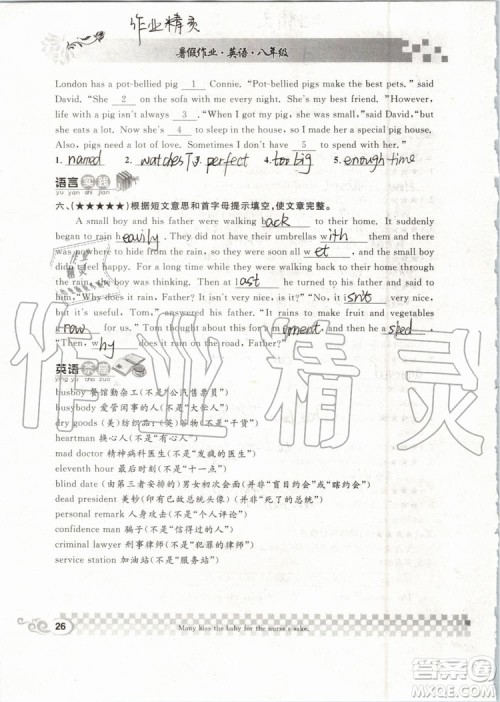 作业精灵
暑假作业·英语·八年级
London has a pot-bellied pig 1 Connie. "Pot-bellied pigs make the best pets." said
David. "She 2 on the sofa with me every night. She's my best friend. "However,
life with a pig isn't always 3 . "When I got my pig, she was small," said David, "but
she eats a lot. Now she's 4 to sleep in the house, so I made her a special pig house.
Also, pigs need a lot of love. Sometimes I don't have 5 to spend with her."
1. named 2. watches TV 3. perfect 4. too big 5. enough time
语言实践
yu yan shi jian
六、(★★★★★)根据短文意思和首字母提示填空,使文章完整。
A small boy and his father were walking back to their home. It suddenly
began to rain heavily. They didn't have their umbrellas with them and there
was nowhere to hide from the rain, so they were wet, and the small boy
didn't feel happy. For a long time while they were walking back to their home through
the rain, the boy was thinking. Then at last he turned to his father and said to
him, "Why does it rain, Father? It isn't very nice, is it?" "No, it isn't very nice,
but it's useful, Tom," answered his father. "It rains to make fruit and vegetables
grow for us." Tom thought about this for a moment, and then he sped.
"Then, why does it rain on the road, Father?"
英语
ying yu
busboy 餐馆勤杂工(不是"公汽售票员")
busybody 爱管闲事的人(不是"大学人")
dry goods (美)纺织品;(英)谷物(不是"干货")
heartman 换心人(不是"有心人")
mad doctor 精神病科医生(不是"发疯的医生")
eleventh hour 最后时刻(不是"十一点")
blind date (由第三者安排的)男女初次会面(并非"盲目约会"或"瞎约会")
dead president 美钞(印有已故总统头像)(并非"死了的总统")
personal remark 人身攻击(不是"个人评论")
confidence man 骗子(不是"信得过的人")
criminal lawyer 刑事律师(不是"犯罪的律师")
service station 加油站(不是"服务站")
26
Many kiss the baby for the nurse's sake.
作业精灵
作业精灵